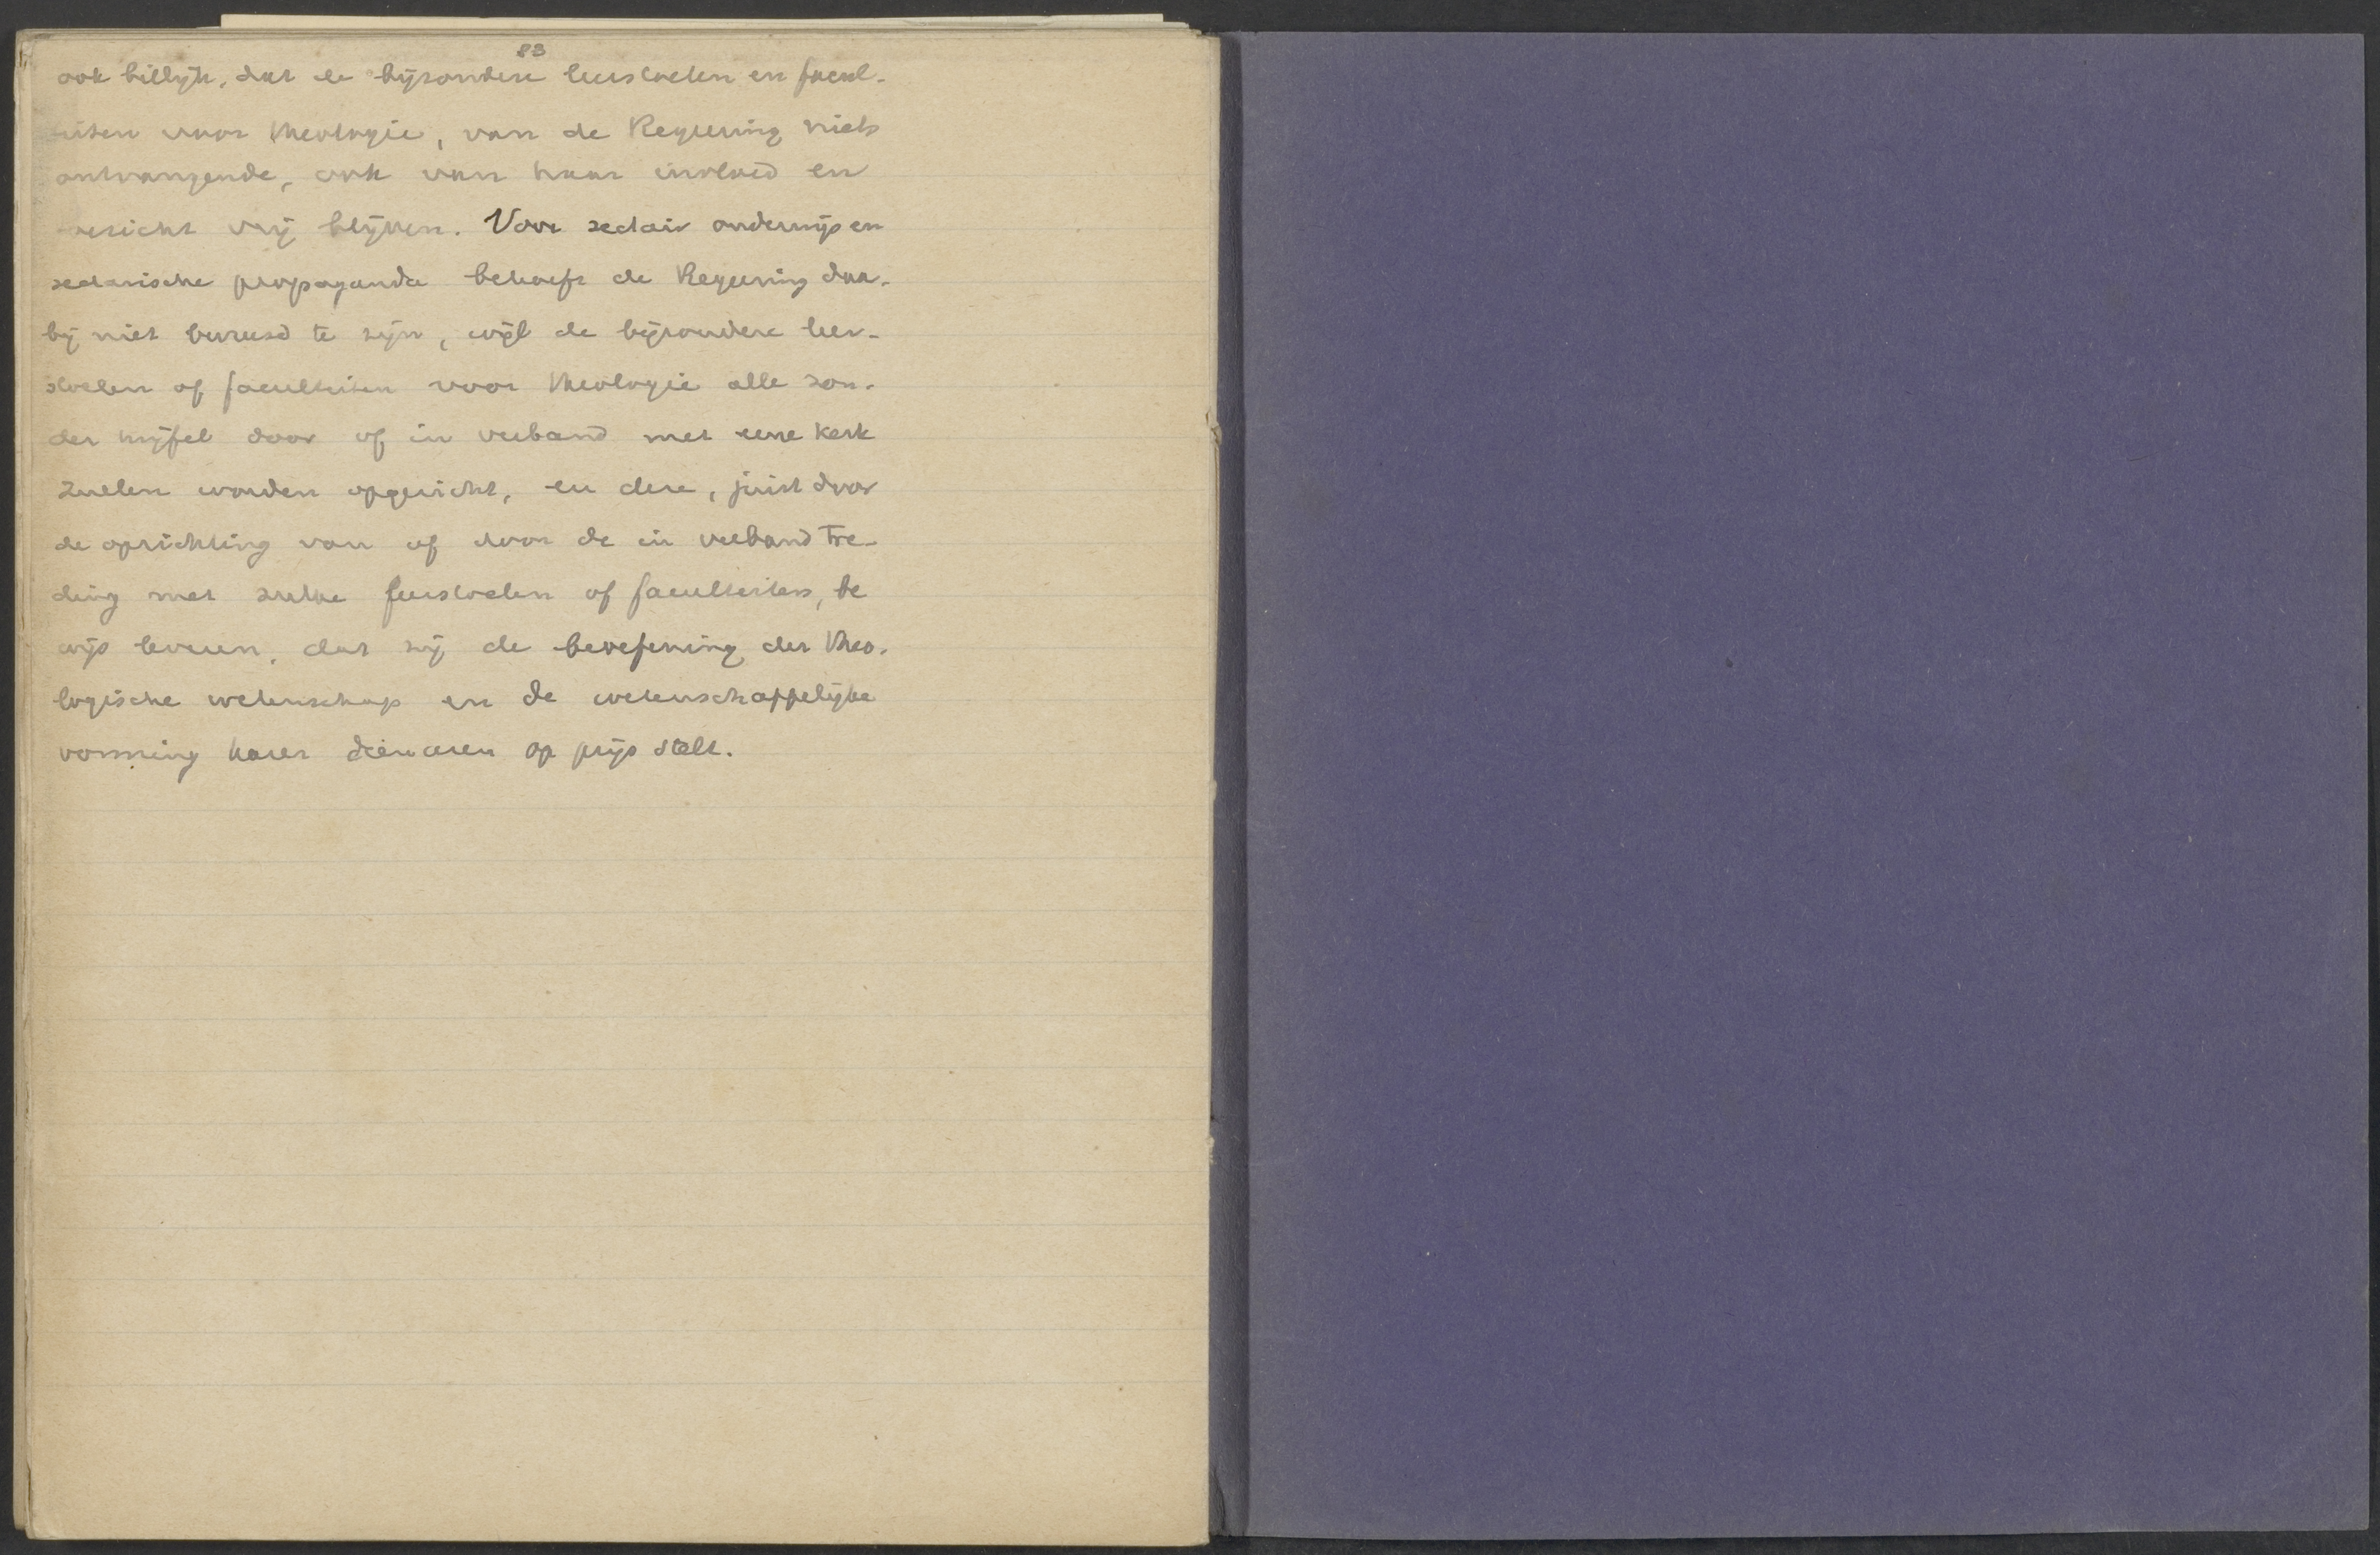 83
ook billijk, dat de bijzondere leerstoelen en facul-
teiten voor theologie, van de Regeering niets
ontvangende, ook van haar invloed en
toezicht vrij blijven. Voor sectair onderwijs en
sectarische propaganda behoeft de Regeering daar-
bij niet bevreesd te zijn, wijl de bijzondere leer-
stoelen of faculteiten voor theologie alle zon-
der twijfel door of in verband met eene kerk
zullen worden opgericht, en deze, juist door
de oprichting van of door de in verband tre-
ding met zulke leerstoelen of faculteiten, be
wijs leveren, dat zij de beoefening der theo-
logische wetenschap en de wetenschappelijke
vorming harer dienaren op prijs stelt.